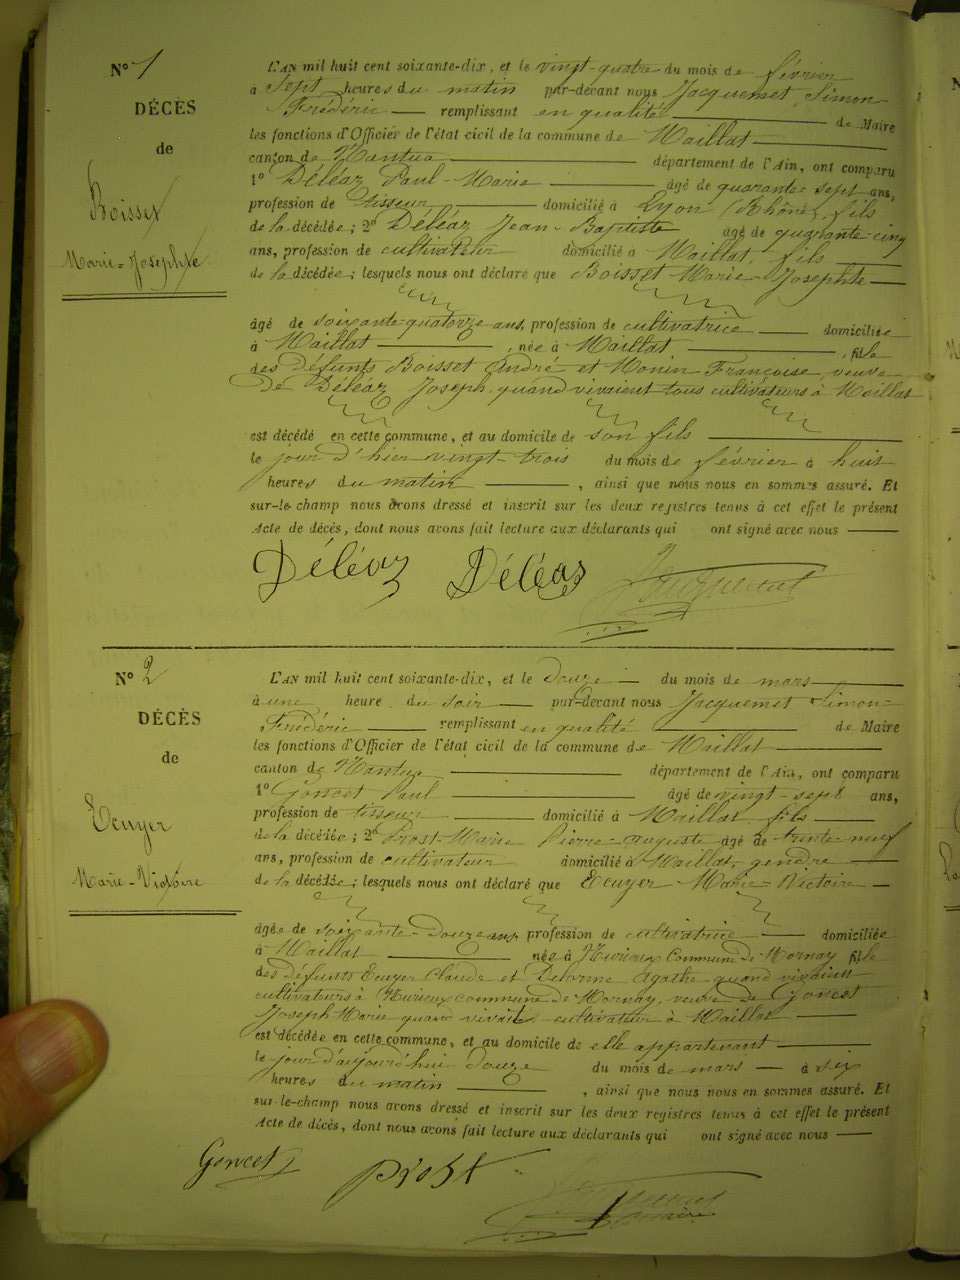 N° 1
DÉCÈS
de
Boisset
Marie-Josephte
L'AN mil huit cent soixante-dix, et le vingt-quatre du mois de février
à sept heures du matin par-devant nous Jacquemet, Simon
Frédéric remplissant en qualité de Maire
les fonctions d'Officier de l'état civil de la commune de Maillat
canton de Nantua département de l'Ain, ont comparu
1° Déléaz Paul-Marie âgé de quarante-sept ans,
profession de tisseur domicilié à Lyon (Rhône), fils
de la décédée; 2° Déléaz Jean-Baptiste âgé de quarante-cinq
ans, profession de cultivateur domicilié à Maillat, fils
de la décédée; lesquels nous ont déclaré que Boisset Marie-Josephte
âgé de soixante-quatorze ans, profession de cultivatrice domiciliée
à Maillat, née à Maillat, fille
des défunts Boisset André et Monin Françoise, veuve
de Déléaz Joseph, quand vivaient tous cultivateurs à Maillat
est décédé en cette commune, et au domicile de son fils
le jour d'hier vingt-trois du mois de février à huit
heures du matin, ainsi que nous nous en sommes assuré. Et
sur-le-champ nous avons dressé et inscrit sur les deux registres tenus à cet effet le présent
Acte de décès, dont nous avons fait lecture aux déclarants qui ont signé avec nous
Déléaz Déléas Jacquemet
N° 2
DÉCÈS
de
Ecuyer
Marie-Victoire
L'AN mil huit cent soixante-dix, et le douze du mois de mars
à une heure du soir par-devant nous Jacquemet Simon-
Frédéric remplissant en qualité de Maire
les fonctions d'Officier de l'état civil de la commune de Maillat
canton de Nantua département de l'Ain, ont comparu
1° Goncet Paul âgé de vingt-sept ans,
profession de tisseur domicilié à Maillat, fils
de la décédée; 2° Prost-Marie Pierre-auguste âgé de trente-neuf
ans, profession de cultivateur domicilié à Maillat, gendre
de la décédée; lesquels nous ont déclaré que Ecuyer Marie-Victoire
âgée de soixante-douze ans profession de cultivatrice domiciliée
à Maillat née à Heurieux Commune de Mornay fille
des défunts Ecuyer Claude et Delorme Agathe quand vivaient
cultivateurs à Heurieux commune de Mornay, veuve de Goncet
Joseph Marie quand vivait cultivateur à Maillat
est décédée en cette commune, et au domicile de elle appartenant
le jour d'aujourd'hui douze du mois de mars à six
heures du matin, ainsi que nous nous en sommes assuré. Et
sur-le-champ nous avons dressé et inscrit sur les deux registres tenus à cet effet le présent
Acte de décès, dont nous avons fait lecture aux déclarants qui ont signé avec nous
Goncet Prost
maire